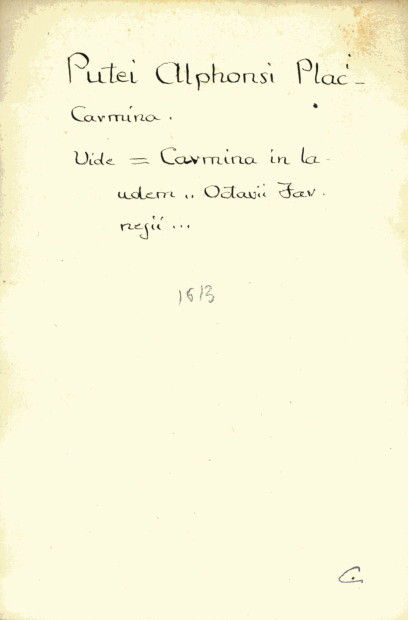 Putei Alphonsi Plac-
Carmina.
Vide = Carmina in la-
udem .. Octavii Far-
nesii ...
1613
C.